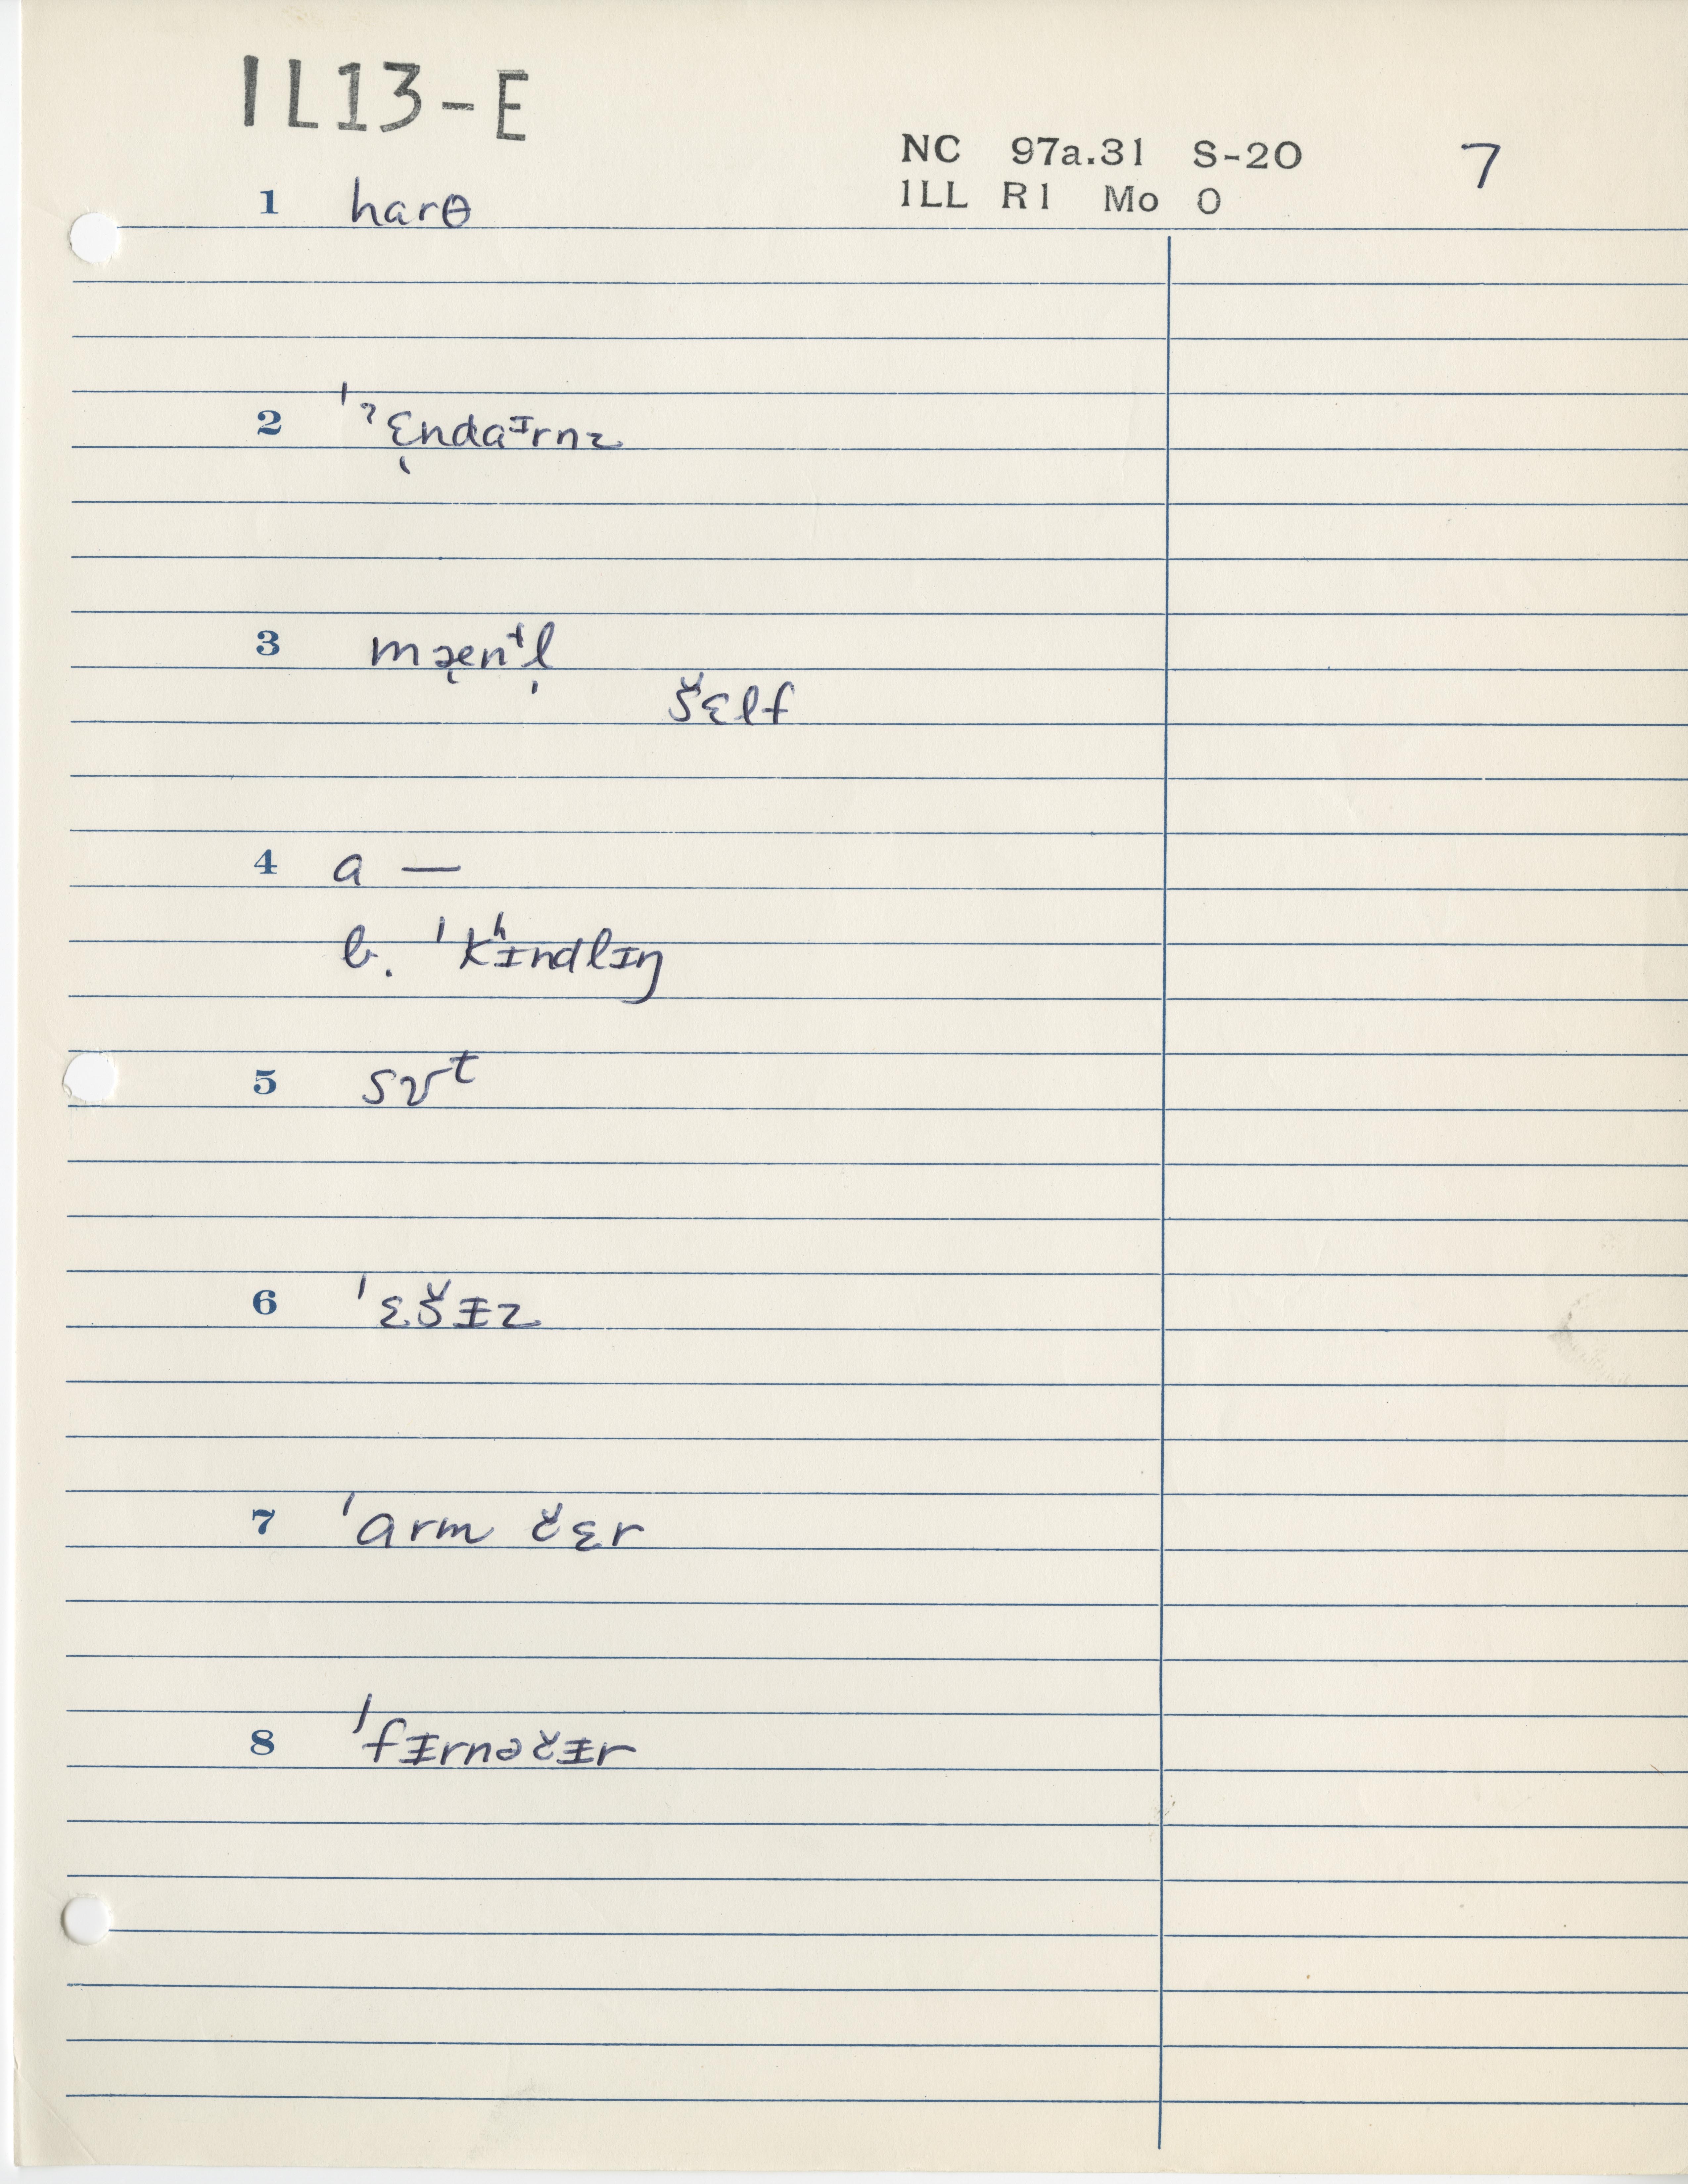 IL13-E
NC 97a.31 S-20 7
ILL R1 Mo O
1 harθ
2 ˈˀɛ̖ndaᶦrnz
3 mæ̖nᵗl̩
šɛlf
4 a —
b. ˈkʰɪndlɪŋ
5 sʊᵗ
6 ˈɛšɪz
7 ˈarm čɛr
8 ˈfɪrnəčɪr